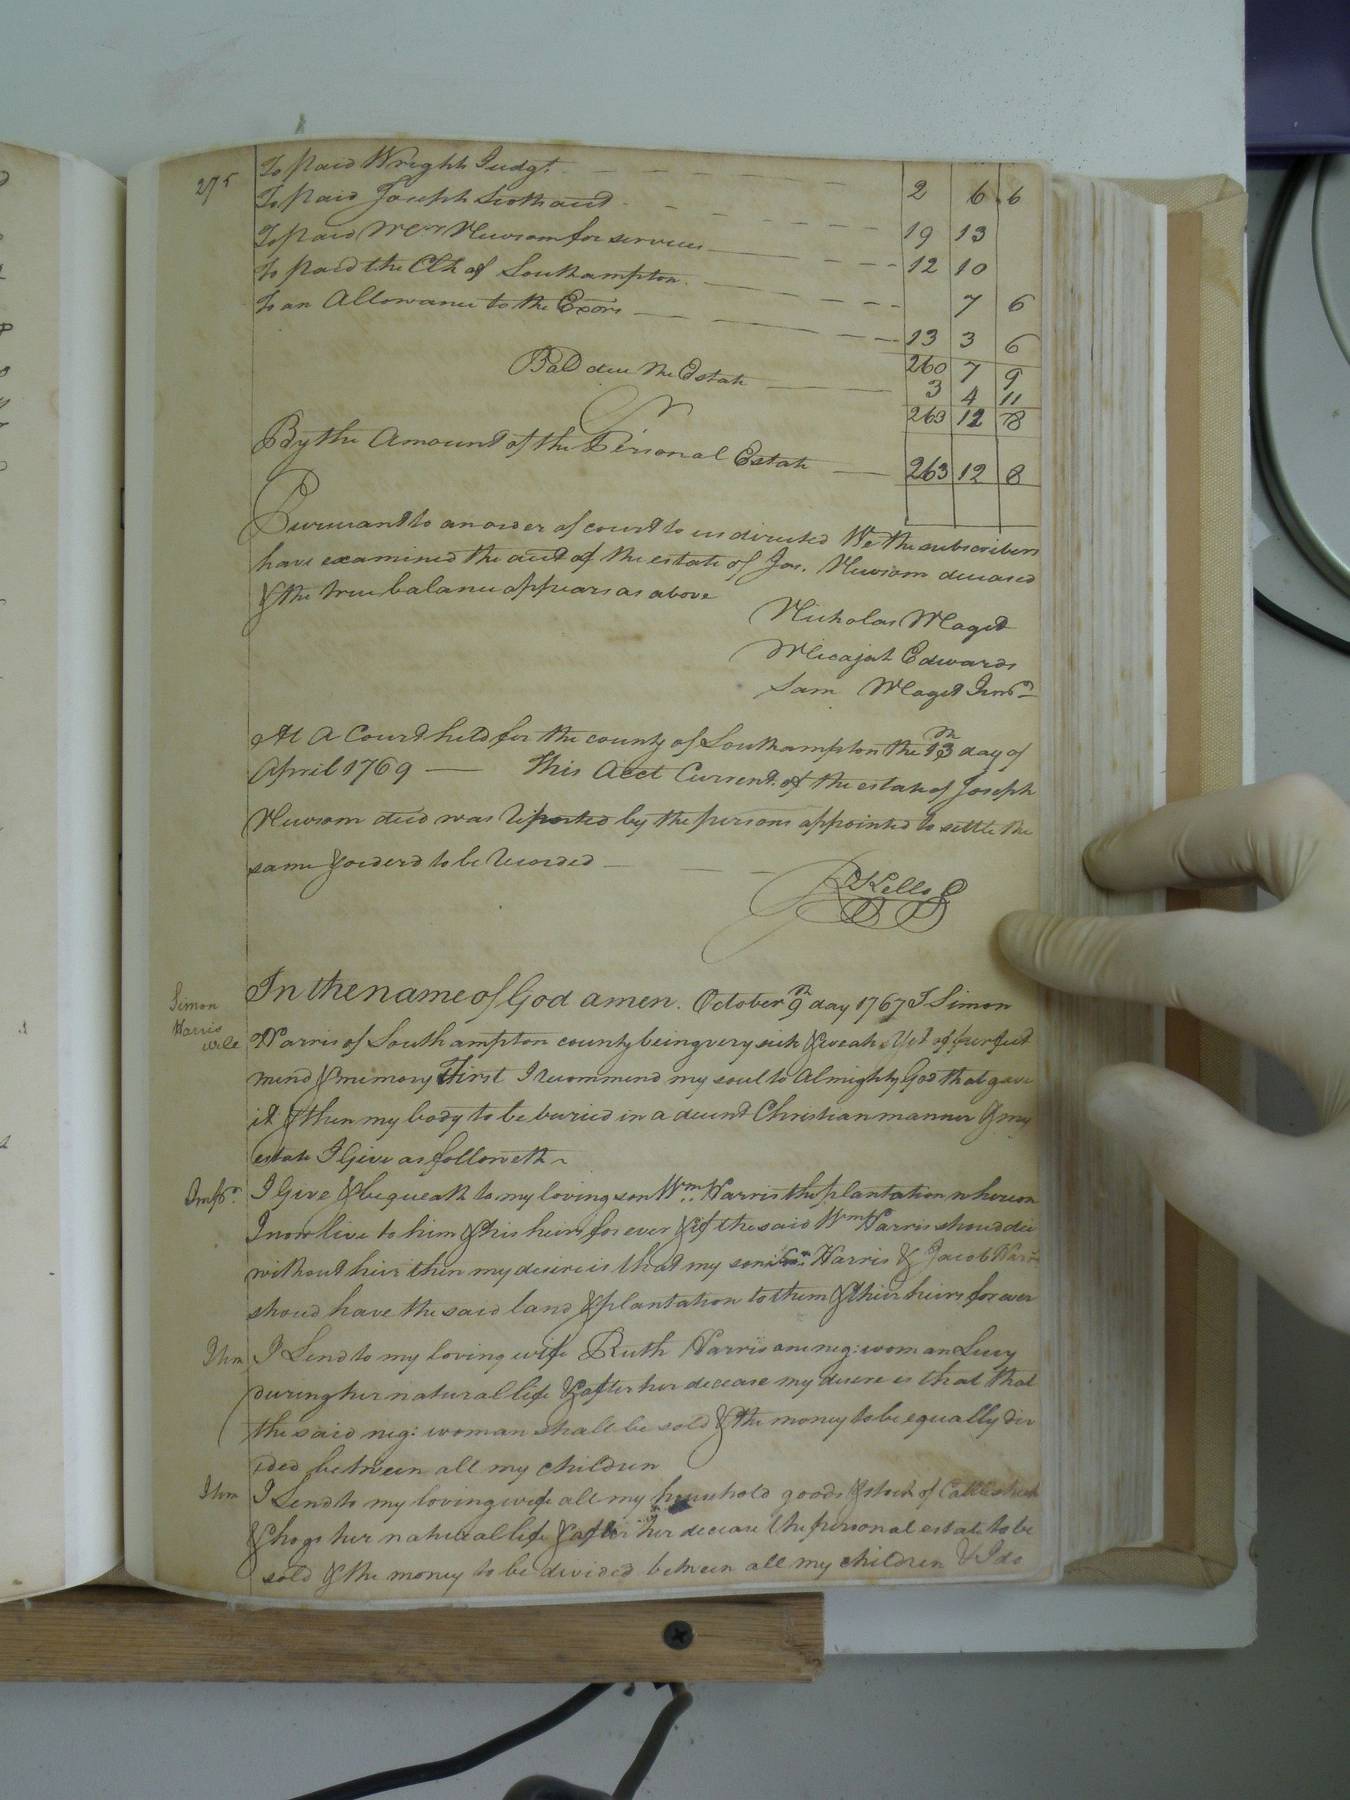 275
To paid Wright Judgt. 2 6 6
To paid Joseph Scotts acct 19 13
To paid Wm Newsom for services 12 10
To paid the Clk of Southampton 7 6
To an Allowance to the Exors 13 3 6
260 7 9
Bal due the Estate 3 4 11
263 12 8
Cr
By the Amount of the Personal Estate 263 12 8
Pursuant to an order of court to us directed We the subscribers
have examined the acct of the estate of Jos. Newsom deceased
& the true balance appears as above
Nicholas Maget
Micajah Edwards
Sam Maget Junr
At A Court held for the county of Southampton the 13th day of
April 1769 — This Acct Current of the estate of Joseph
Newsom decd was Reported by the persons appointed to settle the
same & orderd to be Recorded
R Kello
Simon
Harris
wile
In the name of God amen. October 9th day 1767 I Simon
Harris of Southampton county being very sick & weak Yet of perfect
mind & memory First I recommend my soul to Almighty God that gave
it & then my body to be buried in a decent Christian manner & my
estate I Give as followeth
Imps. I Give & bequeath to my loving son Wm. Harris the plantation whereon
I now live to him & his heirs for ever & if the said Wm Harris shoud die
without heir then my desire is that my son Harris & Jacob Harris
shoud have the said land & plantation to them & their heirs for ever
Itm I Lend to my loving wife Ruth Harris one neg: woman Lucy
during her natural life & after her decease my desire is that that
the said neg: woman shall be sold & the money to be equally div
ided between all my children
Itm I Lend to my loving wife all my household goods & stock of Cattle
& hogs her natural life & after her decease the personal estate to be
sold & the money to be divided between all my children & I do